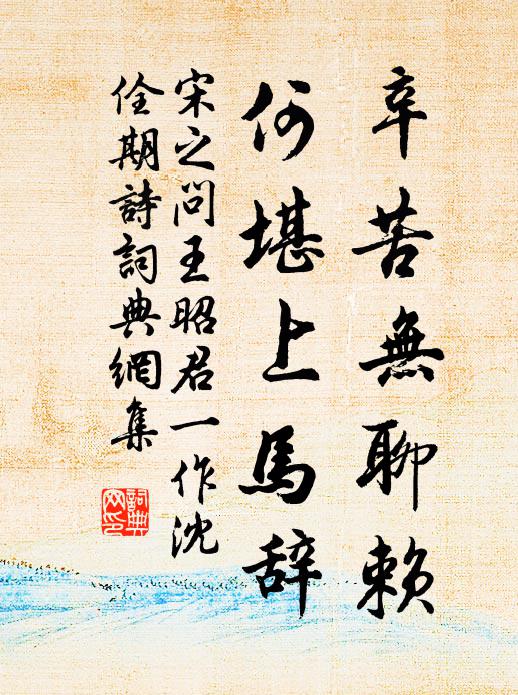 辛苦無聊賴
何堪上馬辞
宋之问王昭君一作沈
佺期詩詞典網集
詞典
网印